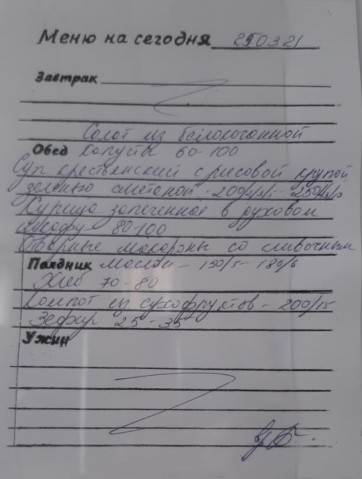 Меню на сегодня 250321
Завтрак
Салат из белокочанной
Обед капусты 60-100
Суп крестьянский с рисовой крупой
зеленью сметаной - 200/5/5 - 250/5/5
Курица запеченная в духовом
шкафу 80-100
Отварные макароны со сливочным
Полдник маслом - 150/5 - 180/6
Хлеб 70-80
Компот из сухофруктов - 200/15
Зефир 25-35
Ужин